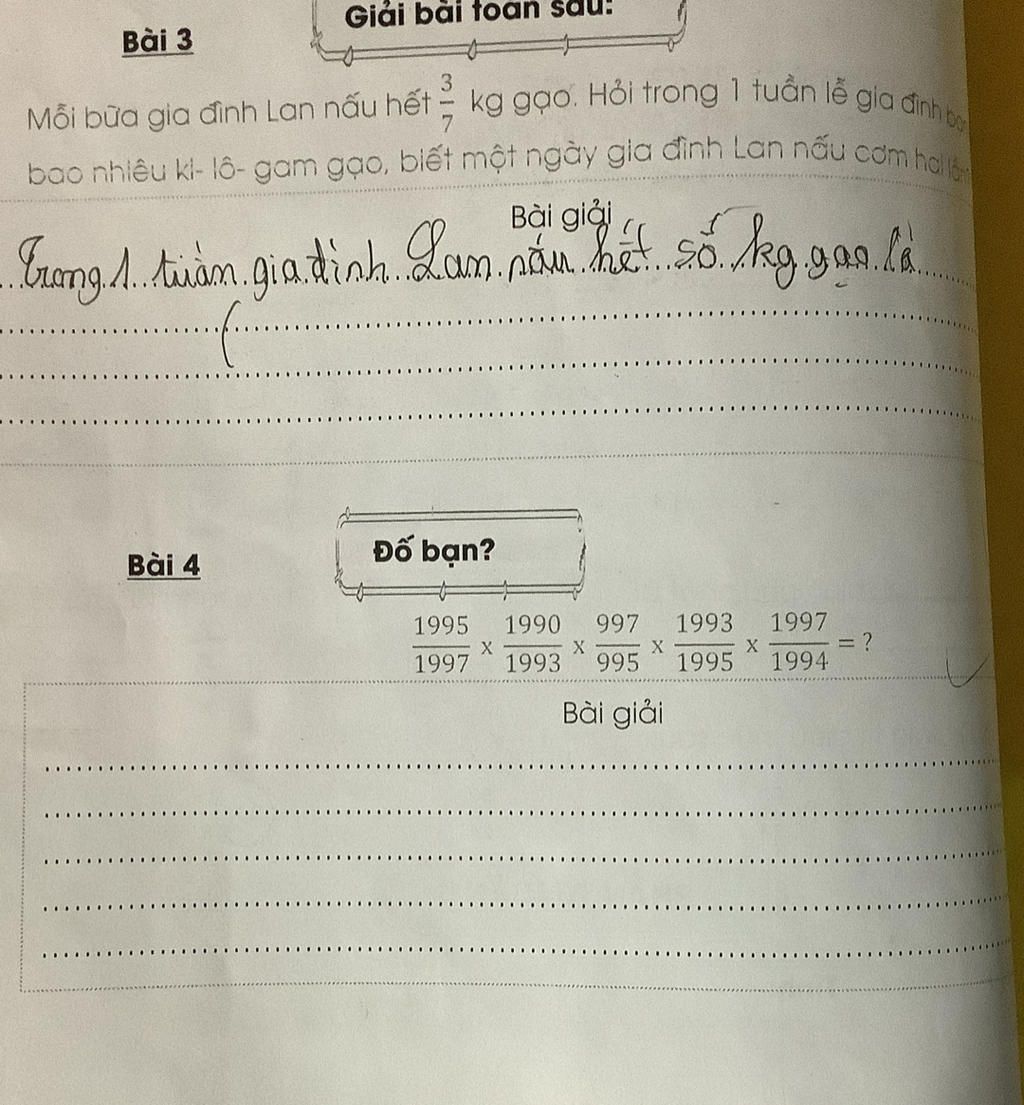 Giải bài toán sau:
Bài 3
Mỗi bữa gia đình Lan nấu hết 3/7 kg gạo. Hỏi trong 1 tuần lễ gia đình bạn
bao nhiêu ki- lô- gam gạo, biết một ngày gia đình Lan nấu cơm hai lần
Bài giải
Trong 1 tuần gia đình Lan nấu hết số kg gạo là
(
Bài 4
Đố bạn?
1995/1997 x 1990/1993 x 997/995 x 1993/1995 x 1997/1994 = ?
Bài giải